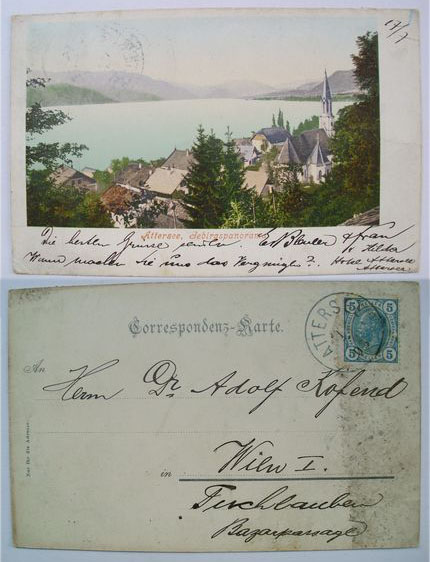 17/7
Attersee, Gebirgspanorama
Die besten Grüsse senden E. & Frau
Wann machen Sie uns das Vergnügen?. Hotel Attersee
Attersee
ATTERS
5 5
5 5
Correspondenz-Karte.
An
Herrn Dr. Adolf Kofend
Nur für die Adresse.
in Wien I.
Tuchlauben
Bazarpassage